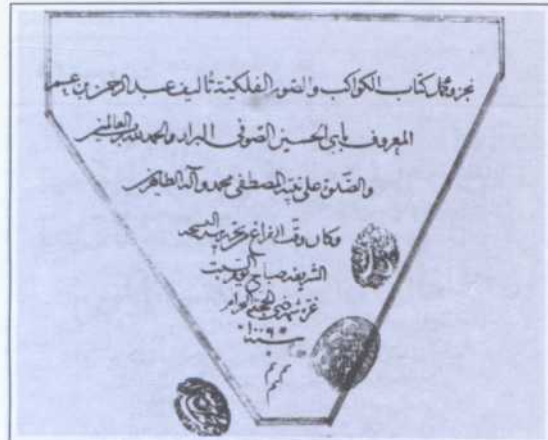 نجز وكمل كتاب الكواكب والصور الفلكية تأليف عبد الرحمن بن عمر
المعروف بأبي الحسين الصوفي البراد والحمد لله رب العالمين
والصلوة على نبيه المصطفى محمد وآله الطاهرين
وكان وقت الفراغ من تحرير النسخة
الشريفة صباح
غرة شهر ذي الحجة الحرام
سنة